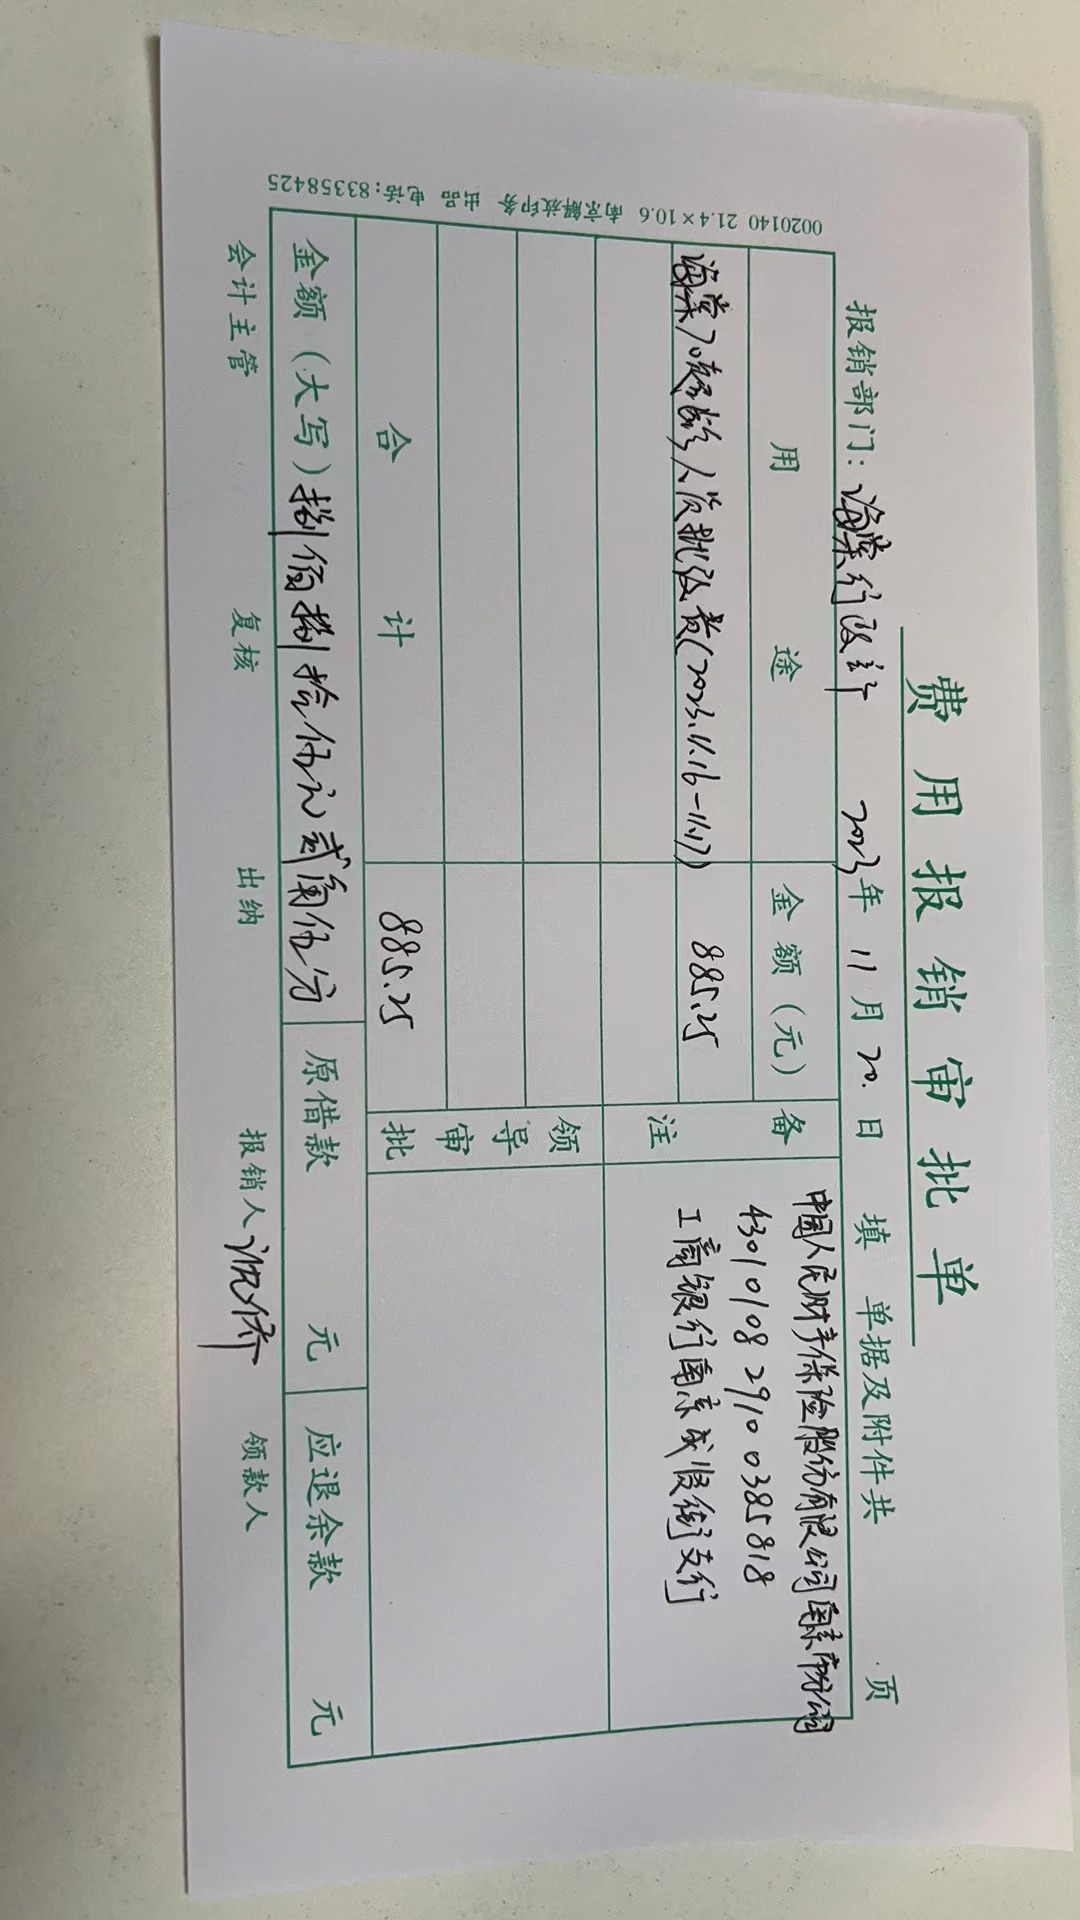 费用报销审批单
报销部门：海棠行政部 2023年11月20.日填 单据及附件共 页
用途 金额（元） 备注
海棠 人员批改费(2023.11.16-11.17) 885.25
中国人民财产保险股份有限公司南京市分公司
4301010829100385818
工商银行南京成贤街支行
领导审批
合计 885.25
金额（大写）捌佰捌拾伍元贰角伍分 原借款 元 应退余款 元
会计主管 复核 出纳 报销人 领款人
0020140 21.4×10.6 南京解放印务 出品 电话:83358425